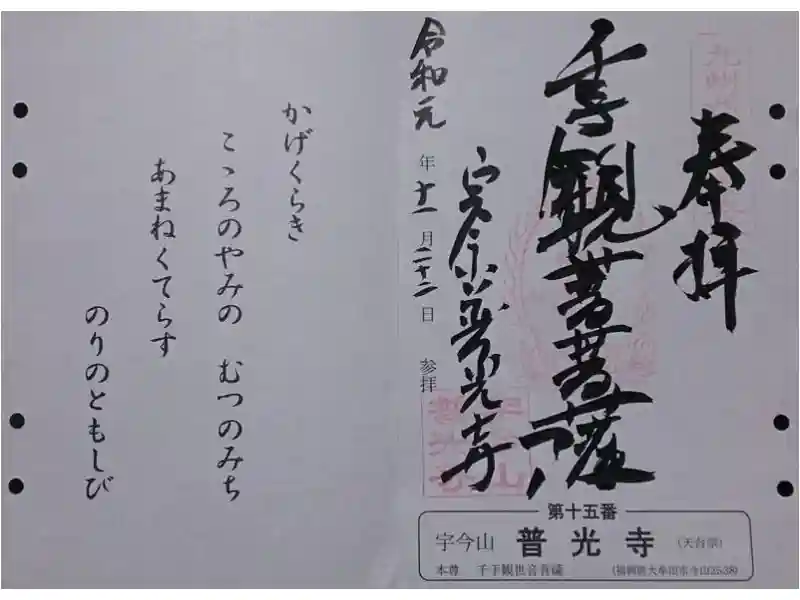 奉拝
令和元年十一月二十二日 参拝
普光寺
かげくらき
こゝろのやみの むつのみち
あまねくてらす
のりのともしび
第十五番
宇今山 普光寺 (天台宗)
本尊 千手観世音菩薩 (福岡県大牟田市今山2538)